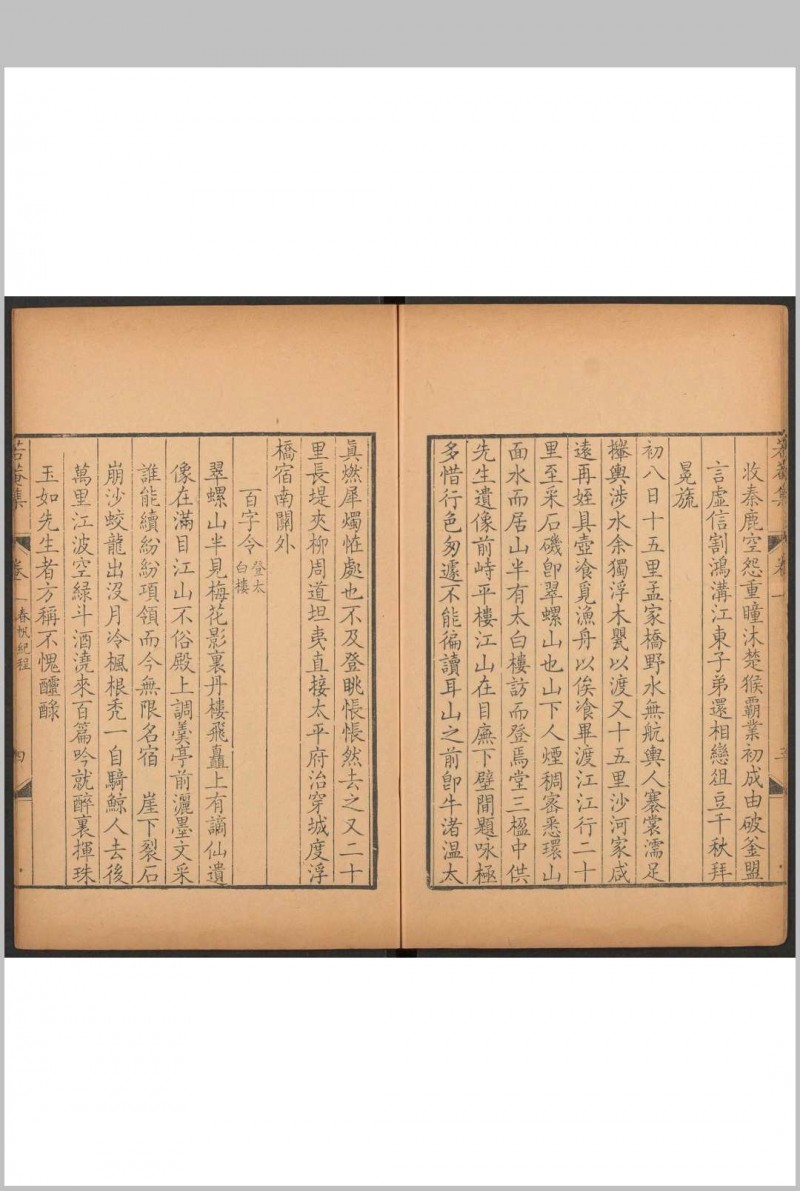 收秦鹿空怨重瞳沐楚猴霸業初成由破釜盟
言虛信割鴻溝江東子弟還相戀俎豆千秋拜
冕旒
初八日十五里孟家橋野水無航輿人褰裳濡足
攀輿涉水余獨浮木甖以渡又十五里沙河家咸
遠再姪具壺飧覓漁舟以俟飧畢渡江江行二十
里至采石磯卽翠螺山也山下人煙稠密悉環山
面水而居山半有太白樓訪而登焉堂三楹中供
先生遺像前峙平樓江山在目廡下壁間題咏極
多惜行色匆遽不能徧讀耳山之前卽牛渚溫太
眞燃犀燭恠處也不及登眺悵悵然去之又二十
里長堤夾柳周道坦夷直接太平府治穿城度浮
橋宿南關外
百字令 登太白樓
翠螺山半見梅花影裏丹樓飛矗上有謫仙遺
像在滿目江山不俗殿上調羹亭前灑墨文采
誰能續紛紛項領而今無限名宿 崖下裂石
崩沙蛟龍出沒月冷楓根禿一自騎鯨人去後
萬里江波空綠斗酒澆來百篇吟就醉裏揮珠
玉如先生者方稱不愧醽醁
卷一 春帆紀程 四